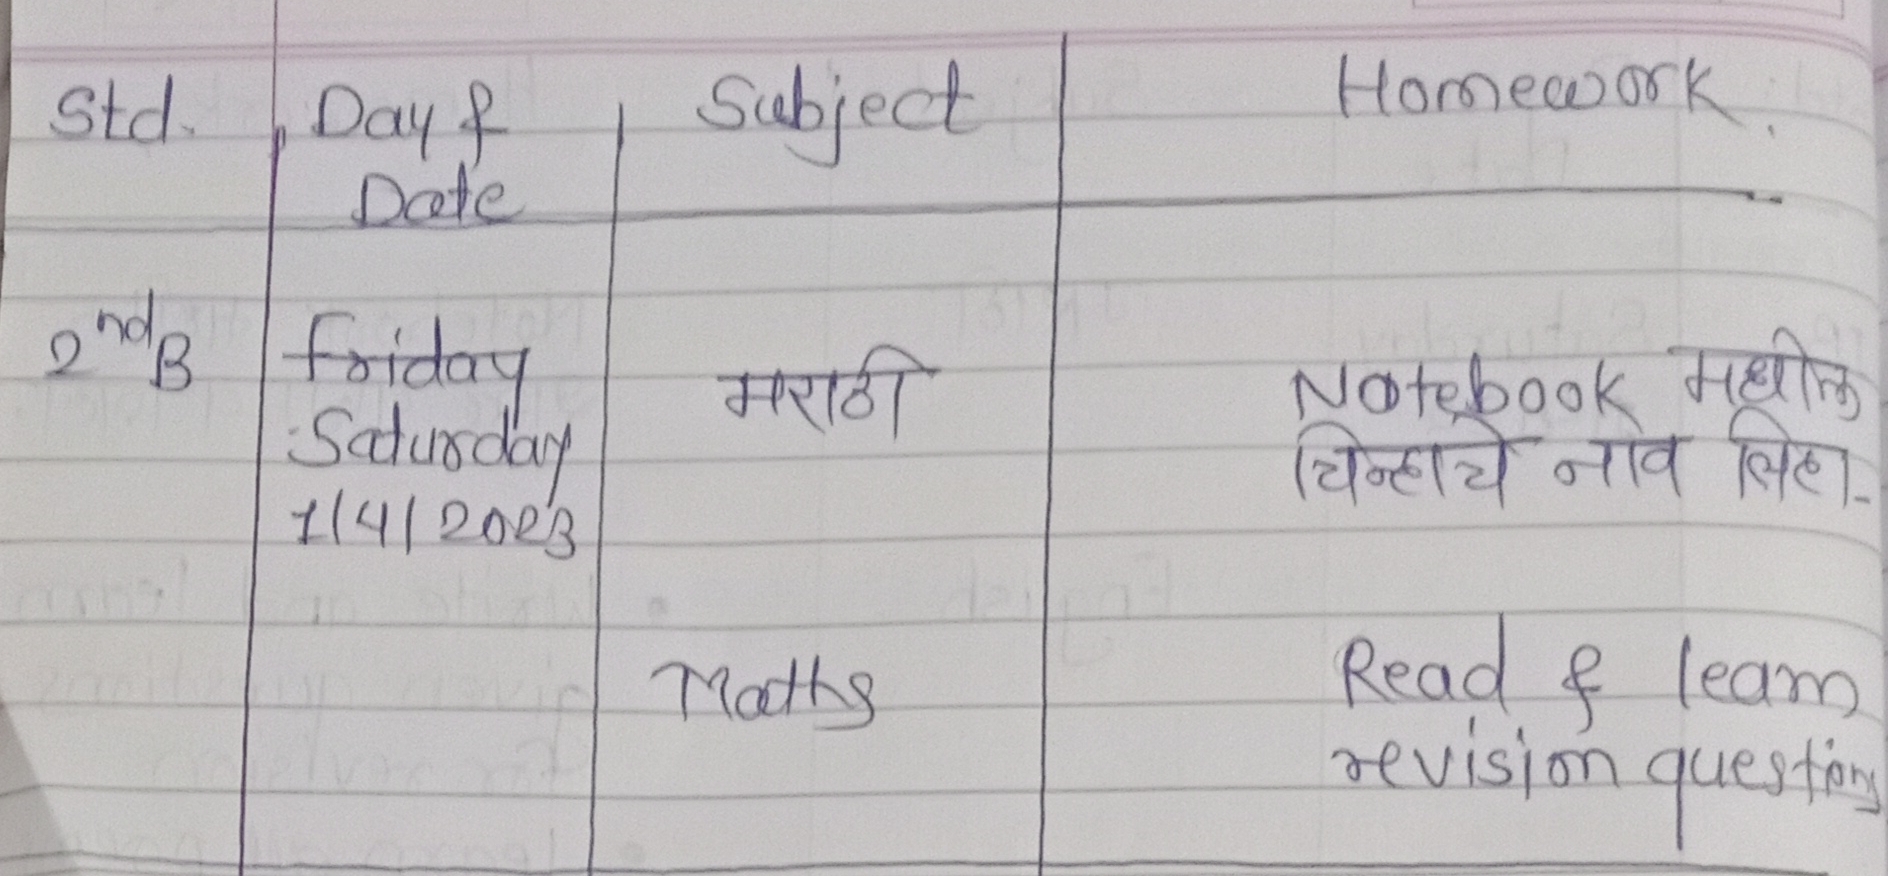 Std. Day & Subject Homework.
Date
2nd B Friday मराठी Notebook मधील
Saturday चिन्हाचे नाव लिहा.
1/4/2023
Maths Read & learn
revision questions